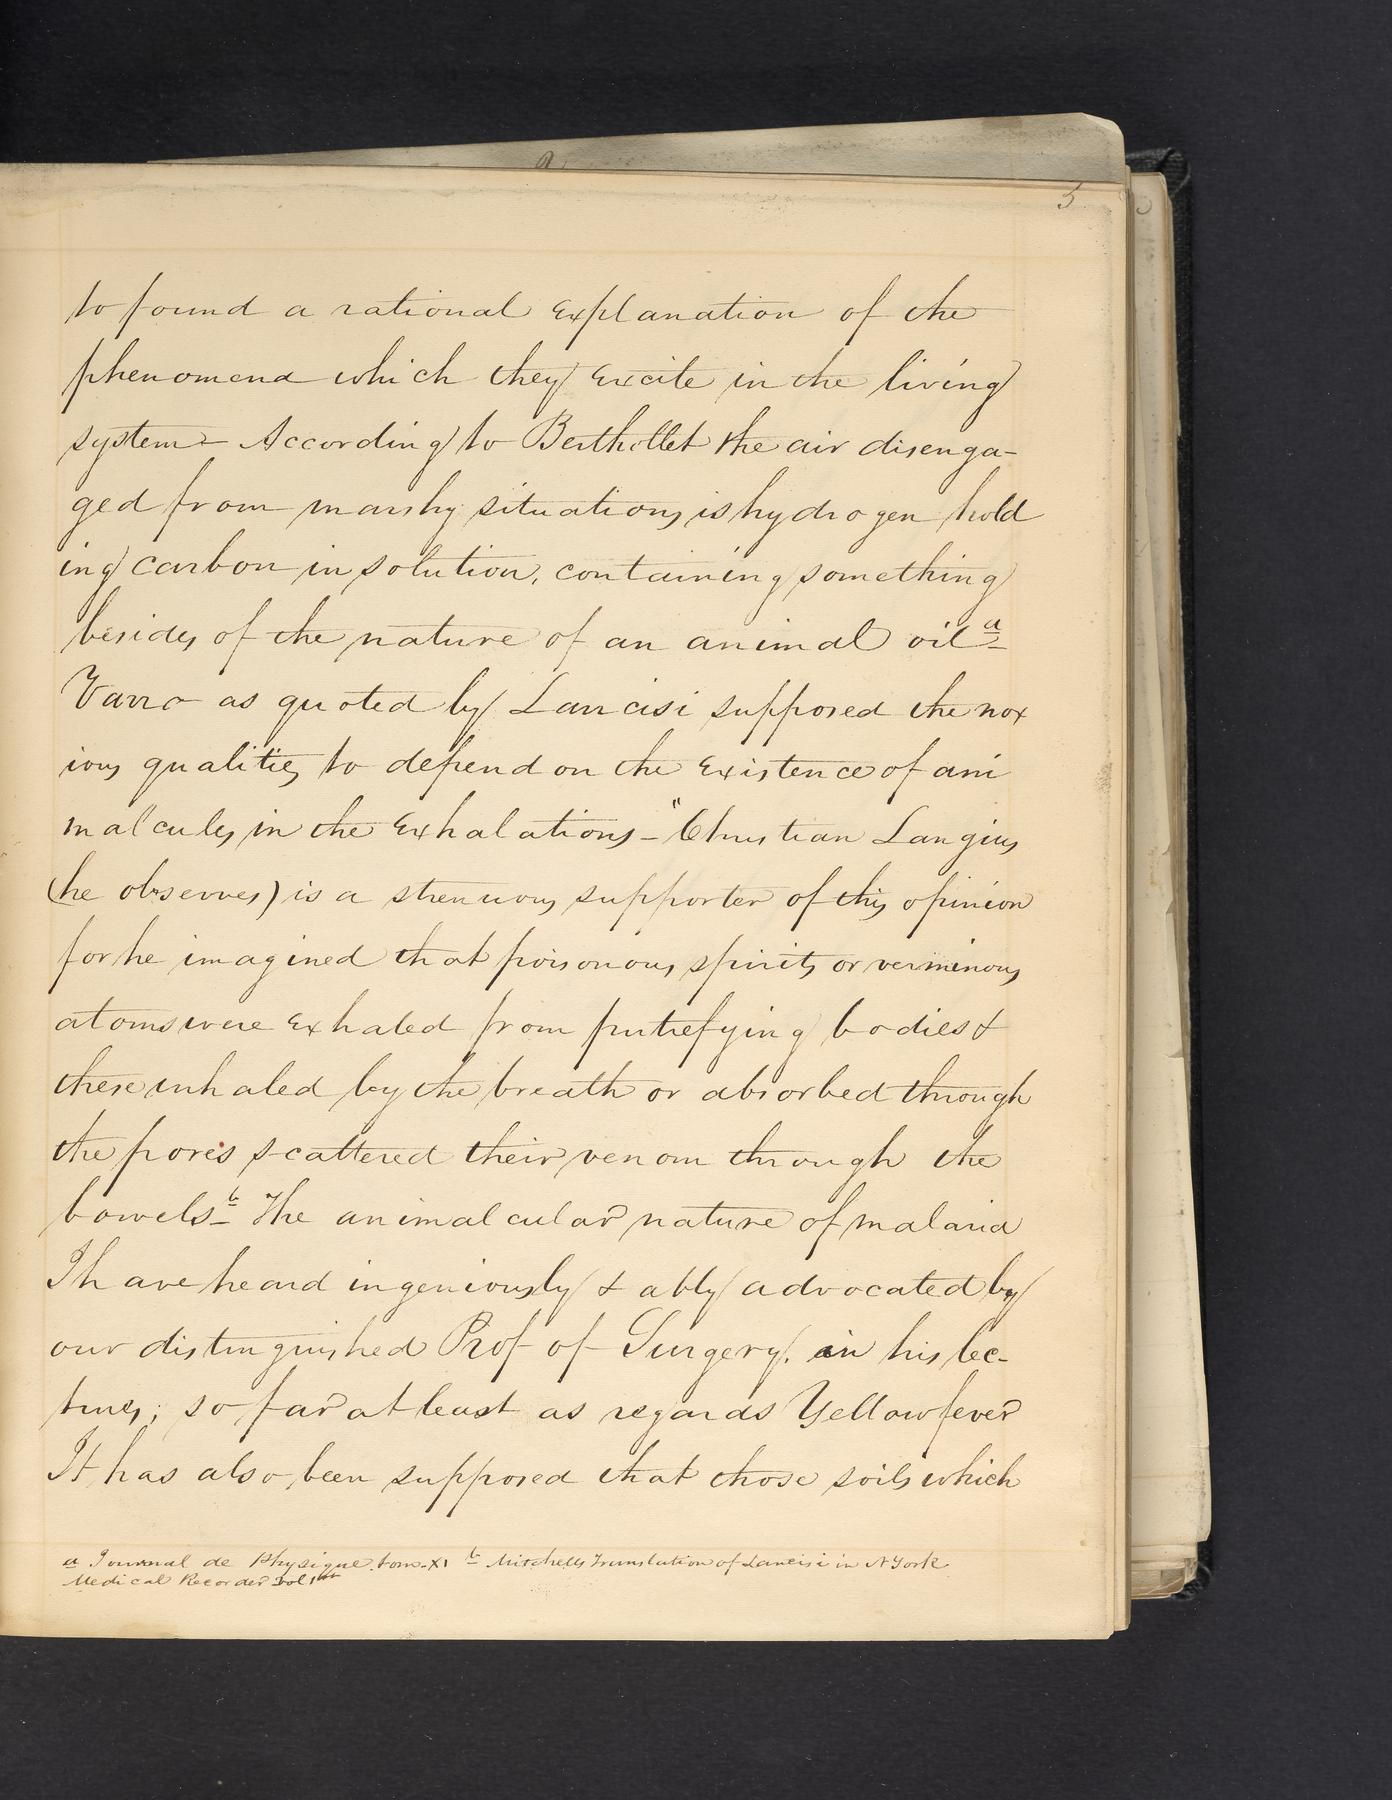 5
to found a rational explanation of the
phenomena which they excite in the living
system – According to Berthollet the air disenga-
ged from marshy situations is hydrogen hold
ing carbon in solution, containing something
besides of the nature of an animal oil a
Varro as quoted by Lancisi supposed the nox
ious qualities to depend on the existence of ani
malcules in the exhalations – "Christian Langius
(he observes) is a strenuous supporter of this opinion
for he imagined that poisonous spirits or verminous
atoms were exhaled from putrefying bodies &
these inhaled by the breath or absorbed through
the pores scattered their venom through the
bowels b – The animalcular nature of malaria
I have heard ingeniously & ably advocated by
our distinguished Prof of Surgery. in his lec-
tures; so far at least as regards Yellow fever
It has also been supposed that those soils which
a Journal de Physique. tom. XI b Mitchells Translation of Lancisi in N York
Medical Recorder vol 1st